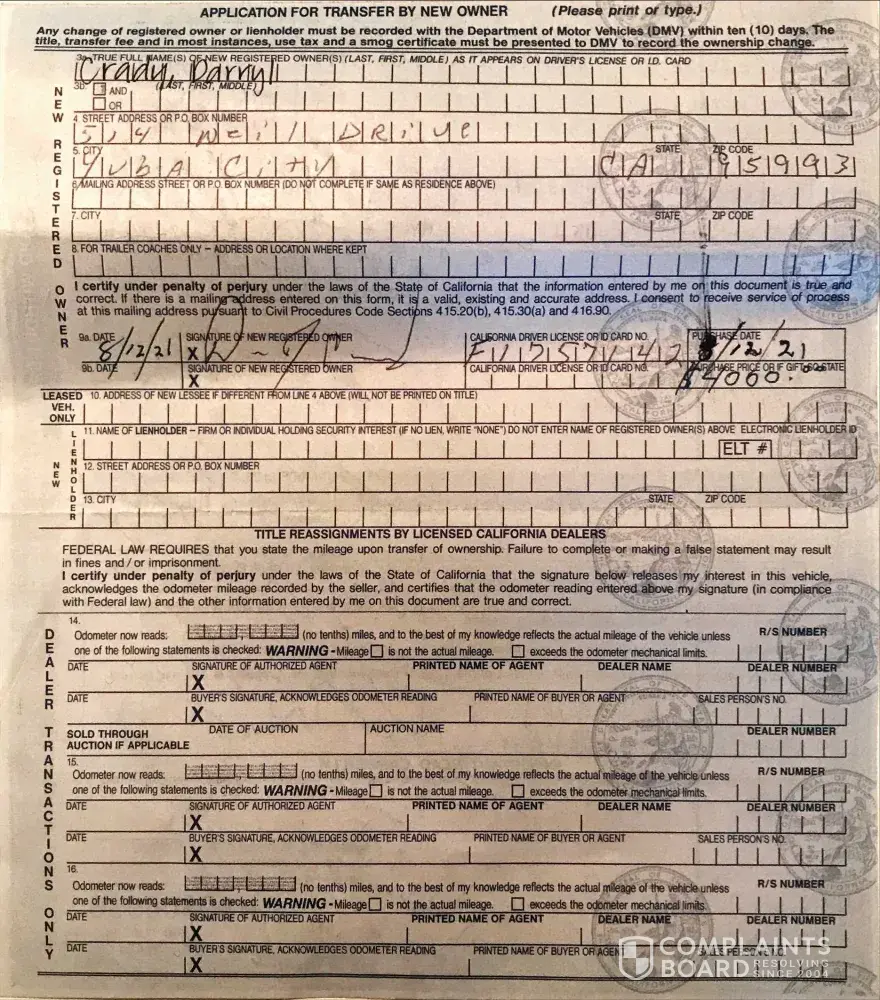 APPLICATION FOR TRANSFER BY NEW OWNER (Please print or type.)
Any change of registered owner or lienholder must be recorded with the Department of Motor Vehicles (DMV) within ten (10) days. The
title, transfer fee and in most instances, use tax and a smog certificate must be presented to DMV to record the ownership change.
3a. TRUE FULL NAME(S) OF NEW REGISTERED OWNER(S) (LAST, FIRST, MIDDLE) AS IT APPEARS ON DRIVER'S LICENSE OR I.D. CARD
Crady, Darryl
3b. AND (LAST, FIRST, MIDDLE)
OR
NEW REGISTERED OWNER
4. STREET ADDRESS OR P.O. BOX NUMBER
514 Neil Drive
5. CITY STATE ZIP CODE
Yuba City CA 95993
6. MAILING ADDRESS STREET OR P.O. BOX NUMBER (DO NOT COMPLETE IF SAME AS RESIDENCE ABOVE)
7. CITY STATE ZIP CODE
8. FOR TRAILER COACHES ONLY – ADDRESS OR LOCATION WHERE KEPT
I certify under penalty of perjury under the laws of the State of California that the information entered by me on this document is true and
correct. If there is a mailing address entered on this form, it is a valid, existing and accurate address. I consent to receive service of process
at this mailing address pursuant to Civil Procedures Code Sections 415.20(b), 415.30(a) and 416.90.
9a. DATE SIGNATURE OF NEW REGISTERED OWNER CALIFORNIA DRIVER LICENSE OR ID CARD NO. PURCHASE DATE
8/12/21 X 8/12/21
9b. DATE SIGNATURE OF NEW REGISTERED OWNER CALIFORNIA DRIVER LICENSE OR ID CARD NO. PURCHASE PRICE OR IF GIFT SO STATE
X $4000.00
LEASED VEH. ONLY 10. ADDRESS OF NEW LESSEE IF DIFFERENT FROM LINE 4 ABOVE (WILL NOT BE PRINTED ON TITLE)
NEW LIENHOLDER
11. NAME OF LIENHOLDER – FIRM OR INDIVIDUAL HOLDING SECURITY INTEREST (IF NO LIEN, WRITE "NONE") DO NOT ENTER NAME OF REGISTERED OWNER(S) ABOVE ELECTRONIC LIENHOLDER ID
ELT #
12. STREET ADDRESS OR P.O. BOX NUMBER
13. CITY STATE ZIP CODE
TITLE REASSIGNMENTS BY LICENSED CALIFORNIA DEALERS
FEDERAL LAW REQUIRES that you state the mileage upon transfer of ownership. Failure to complete or making a false statement may result
in fines and / or imprisonment.
I certify under penalty of perjury under the laws of the State of California that the signature below releases my interest in this vehicle,
acknowledges the odometer mileage recorded by the seller, and certifies that the odometer reading entered above my signature (in compliance
with Federal law) and the other information entered by me on this document are true and correct.
DEALER TRANSACTIONS ONLY
14.
Odometer now reads: (no tenths) miles, and to the best of my knowledge reflects the actual mileage of the vehicle unless R/S NUMBER
one of the following statements is checked: WARNING - Mileage is not the actual mileage. exceeds the odometer mechanical limits.
DATE SIGNATURE OF AUTHORIZED AGENT PRINTED NAME OF AGENT DEALER NAME DEALER NUMBER
X
DATE BUYER'S SIGNATURE, ACKNOWLEDGES ODOMETER READING PRINTED NAME OF BUYER OR AGENT SALES PERSON'S NO.
X
SOLD THROUGH DATE OF AUCTION AUCTION NAME DEALER NUMBER
AUCTION IF APPLICABLE
15.
Odometer now reads: (no tenths) miles, and to the best of my knowledge reflects the actual mileage of the vehicle unless R/S NUMBER
one of the following statements is checked: WARNING - Mileage is not the actual mileage. exceeds the odometer mechanical limits.
DATE SIGNATURE OF AUTHORIZED AGENT PRINTED NAME OF AGENT DEALER NAME DEALER NUMBER
X
DATE BUYER'S SIGNATURE, ACKNOWLEDGES ODOMETER READING PRINTED NAME OF BUYER OR AGENT SALES PERSON'S NO.
X
16.
Odometer now reads: (no tenths) miles, and to the best of my knowledge reflects the actual mileage of the vehicle unless R/S NUMBER
one of the following statements is checked: WARNING - Mileage is not the actual mileage. exceeds the odometer mechanical limits.
DATE SIGNATURE OF AUTHORIZED AGENT PRINTED NAME OF AGENT DEALER NAME DEALER NUMBER
X
DATE BUYER'S SIGNATURE, ACKNOWLEDGES ODOMETER READING PRINTED NAME OF BUYER OR AGENT SALES PERSON'S NO.
X
COMPLAINTS
BOARD RESOLVING
SINCE 2004